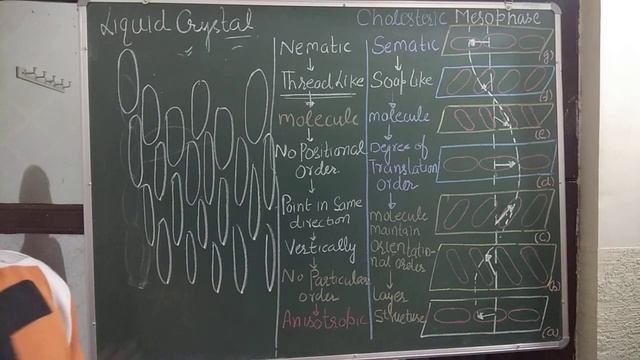 Liquid Crystal
Cholesteric Mesophase
Nematic
Thread Like
molecule
No Positional
Order
Point in Same
direction
Vertically
No Particular
order
Anisotropic
Sematic
Soap Like
molecule
Degree of
Translation
Order
molecule
maintain
Orientatio-
nal order
Layer
Structure
(g)
(f)
(e)
(d)
(c)
(b)
(a)